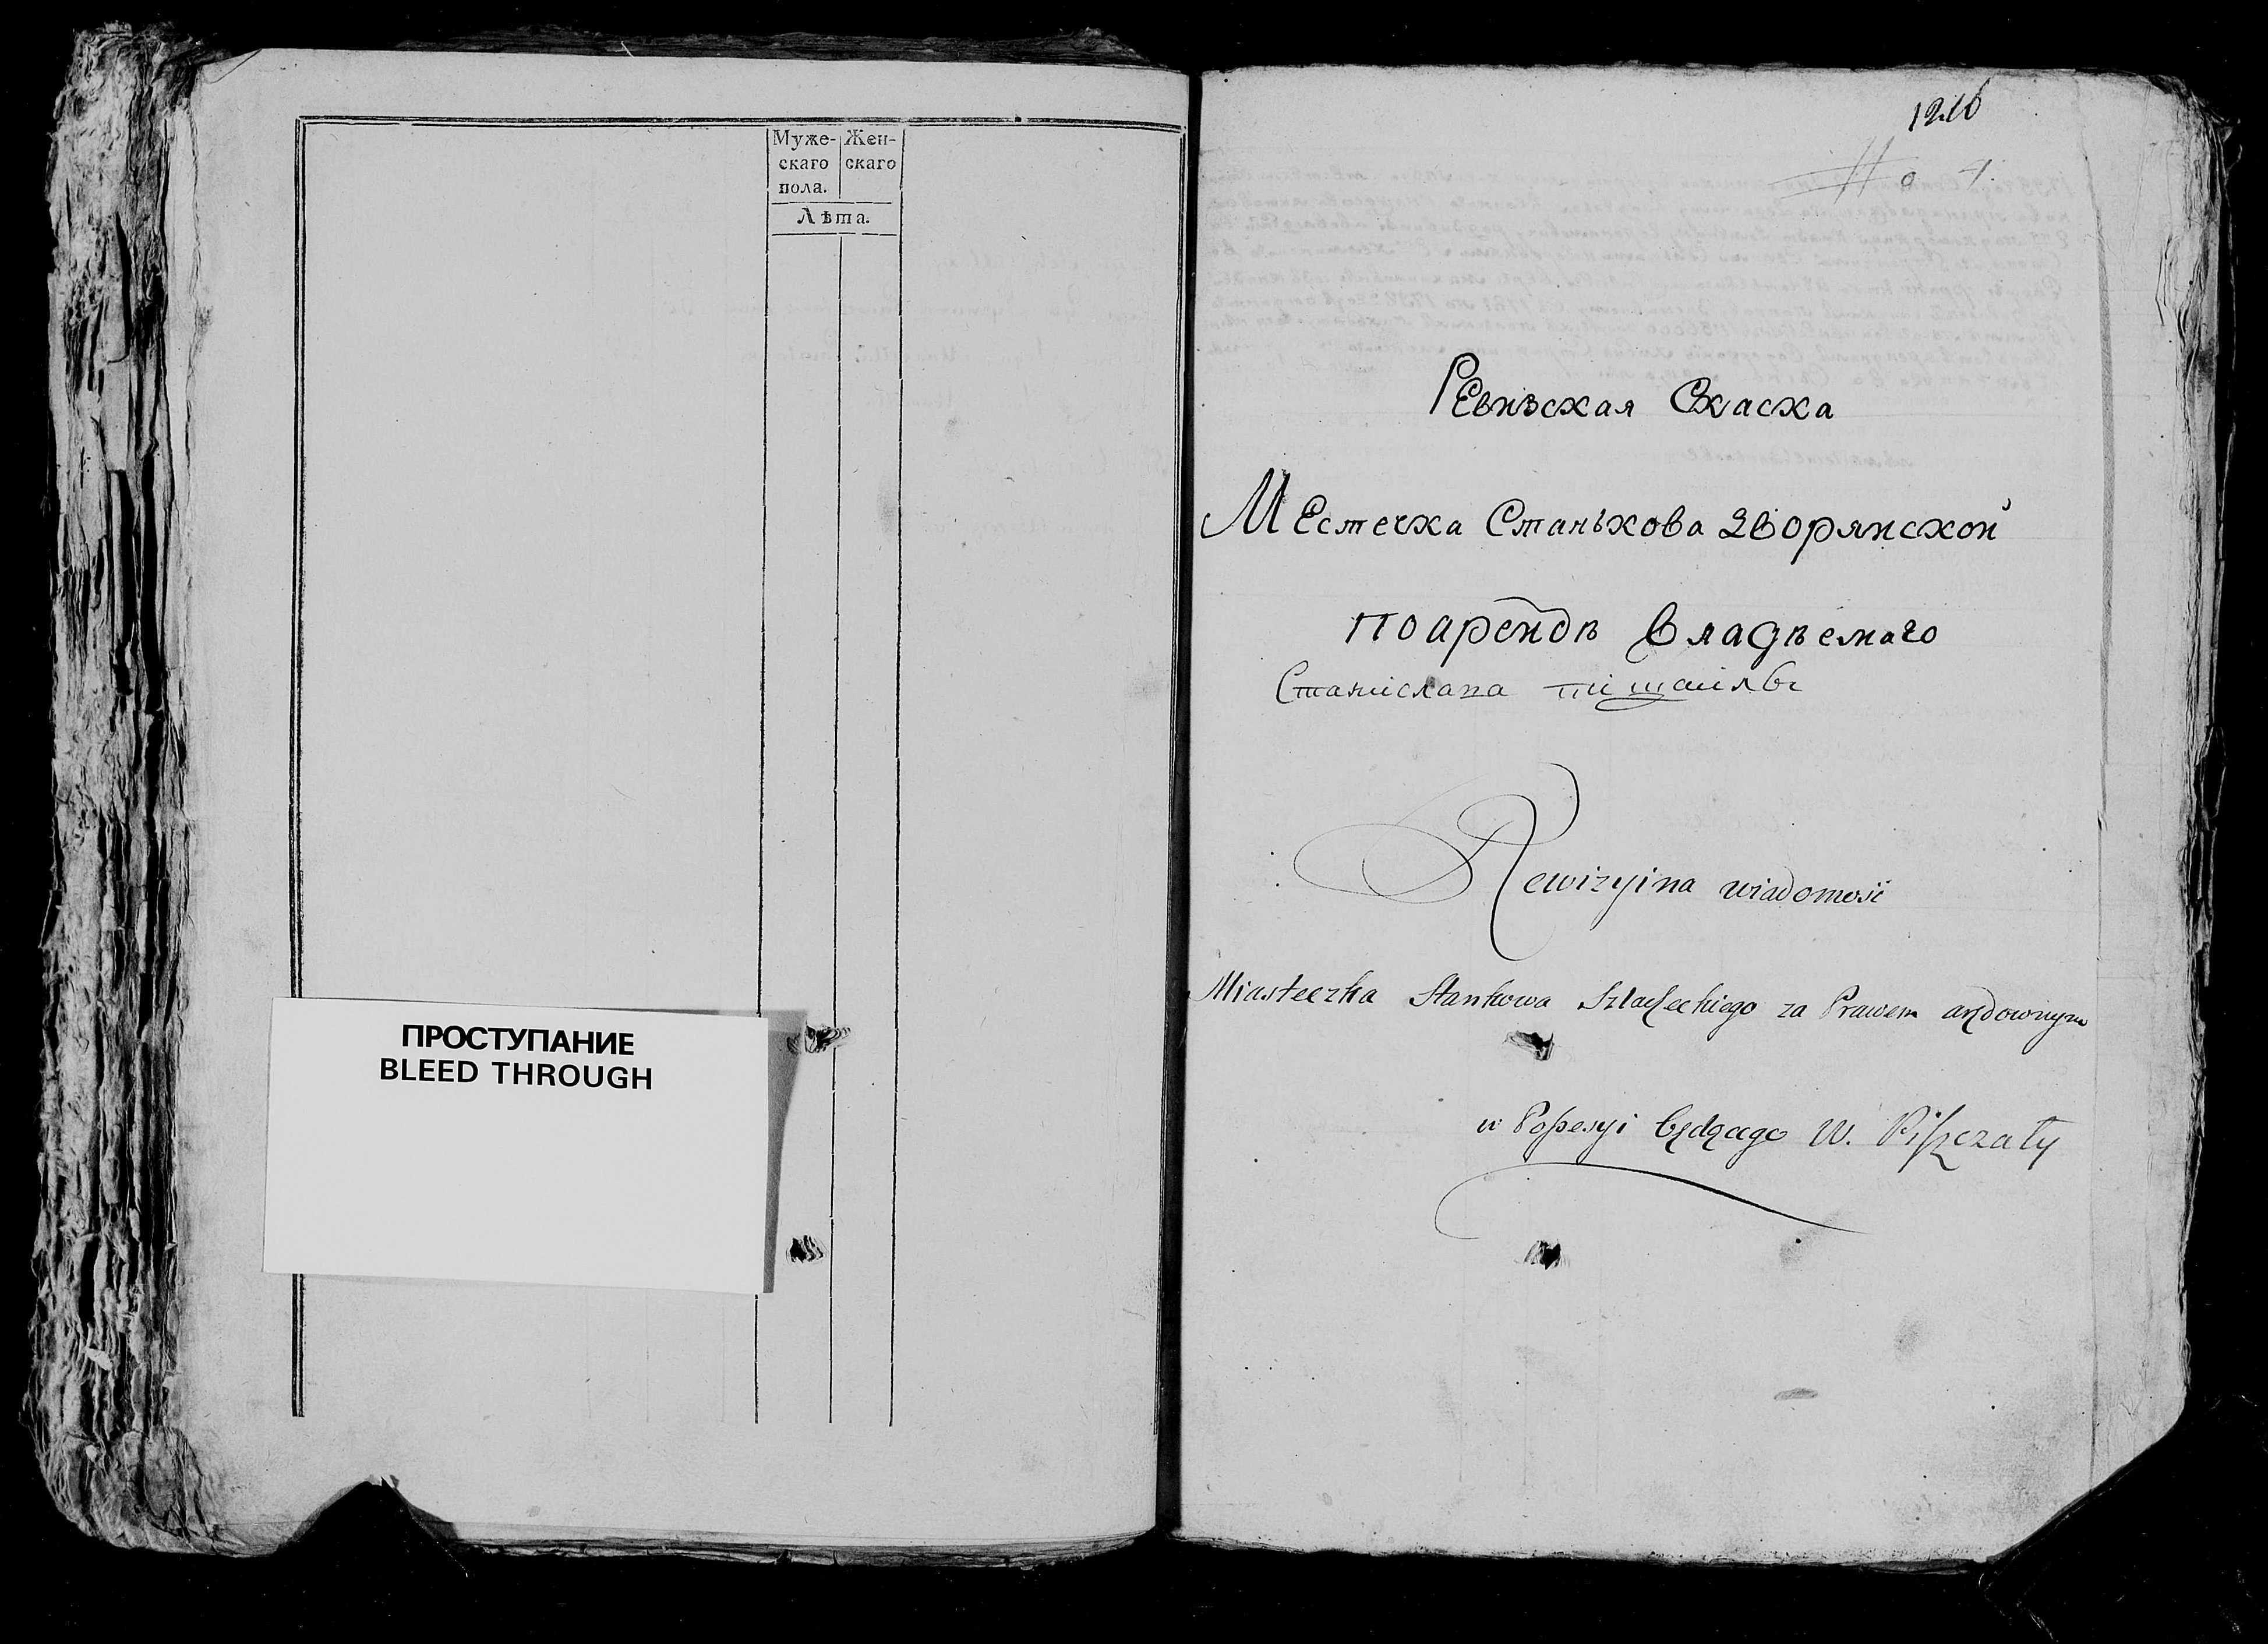 Муже- Жен-
скаго скаго
пола.
Лѣта.
ПРОСТУПАНИЕ
BLEED THROUGH
1216
No 4.
Ревизская Скаска
Местечка Станькова дворянской
по арендѣ владѣемаго
Станислава
Rewizyina wiadomość
Miasteczka Stankowa Szlacheckiego za Prawem arędownym
w Possesyi będącego W. Piszczały